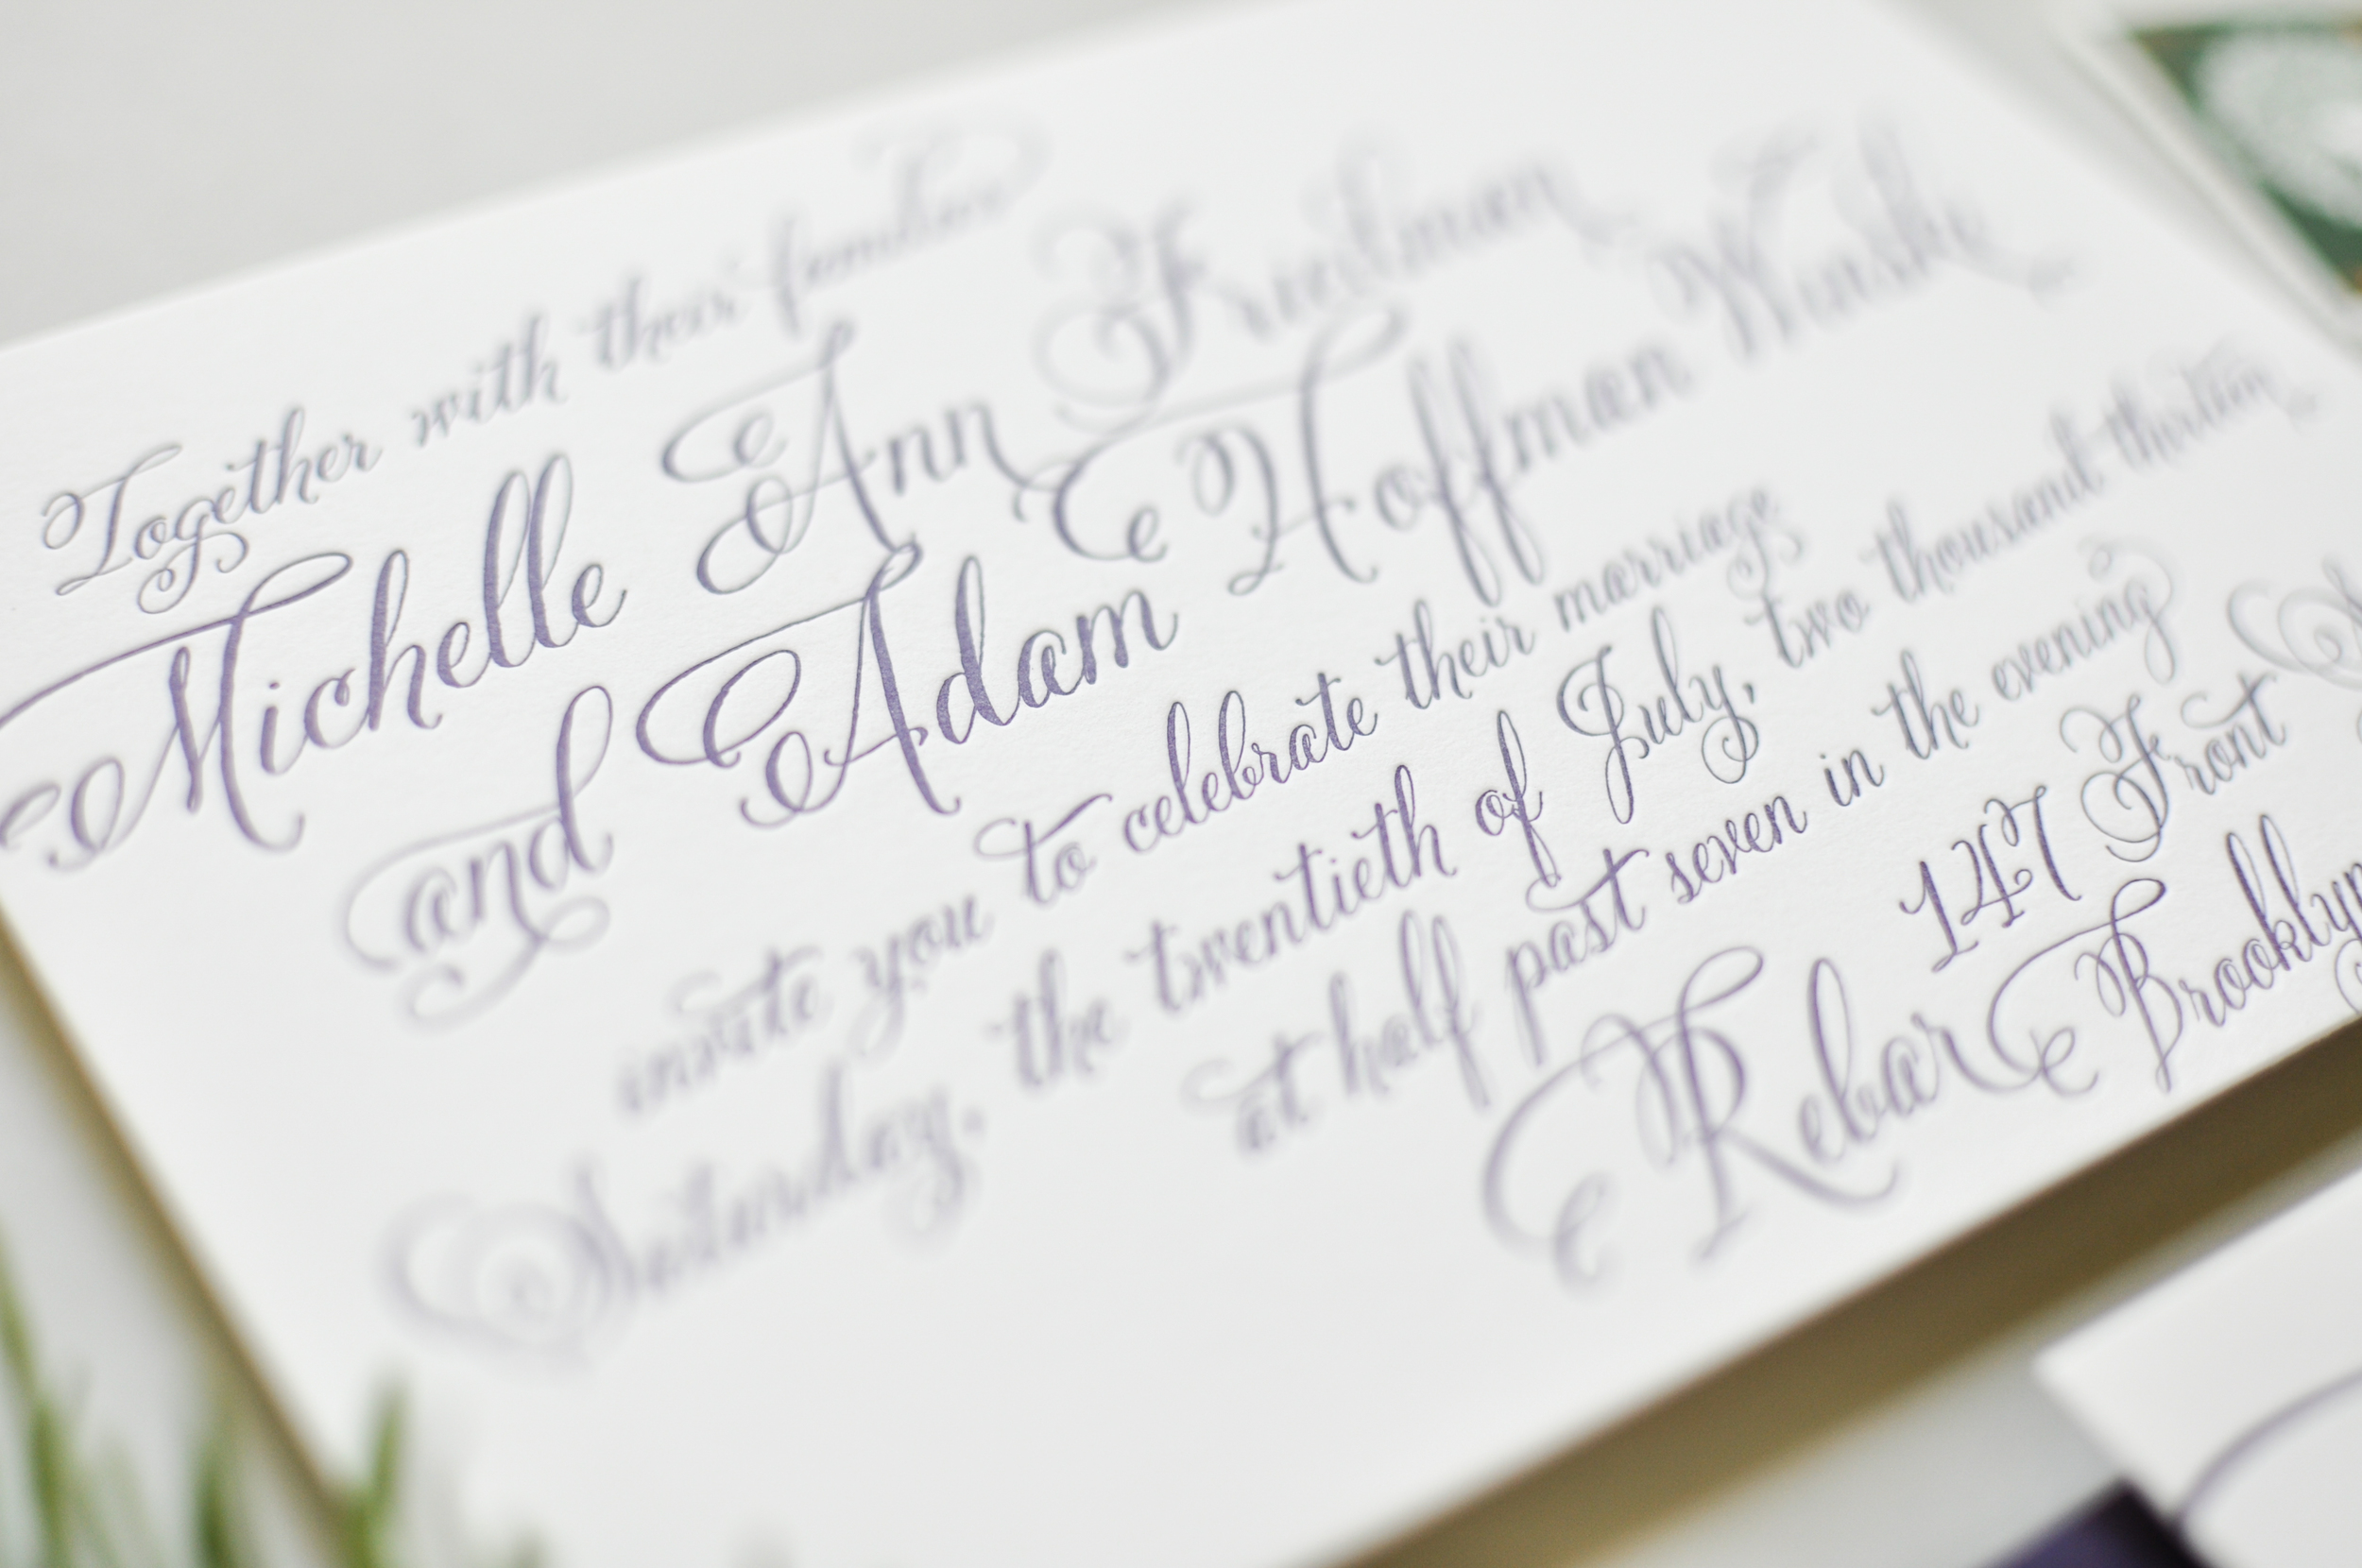 Together with their families
Michelle Ann Friedman
and Adam Hoffman
invite you to celebrate their marriage
Saturday, the twentieth of July, two thousand thirteen
at half past seven in the evening
Rebar
147 Front
Brooklyn